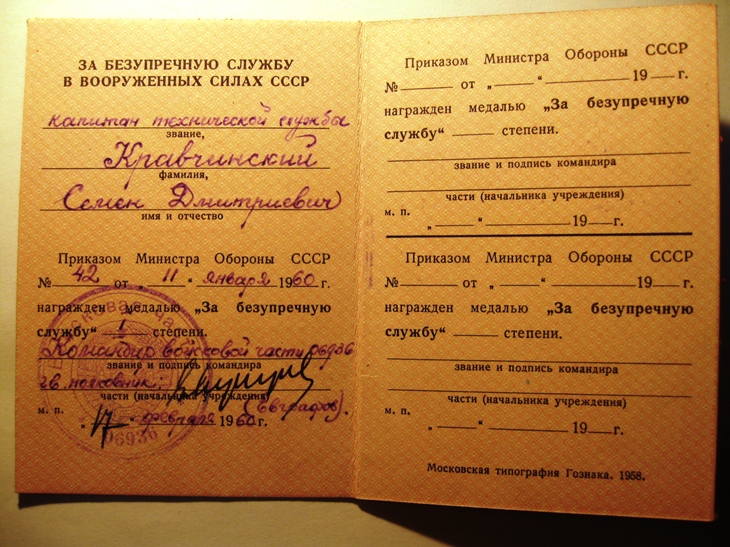 ЗА БЕЗУПРЕЧНУЮ СЛУЖБУ
В ВООРУЖЕННЫХ СИЛАХ СССР
капитан технической службы
звание,
Кравчинский
фамилия,
Семен Дмитриевич
имя и отчество
Приказом Министра Обороны СССР
№ 42 от „ 11 “ января 1960 г.
награжден медалью „За безупречную
службу“ I степени.
Командир войсковой части 06936
звание и подпись командира
гв. полковник:
части (начальника учреждения)
(Евграфов).
м. п. „ 17 “ февраля 1960 г.
06936
Приказом Министра Обороны СССР
№ от „ “ 19 г.
награжден медалью „За безупречную
службу“ степени.
звание и подпись командира
части (начальника учреждения)
м. п. „ “ 19 г.
Приказом Министра Обороны СССР
№ от „ “ 19 г.
награжден медалью „За безупречную
службу“ степени.
звание и подпись командира
части (начальника учреждения)
м. п. „ “ 19 г.
Московская типография Гознака. 1958.